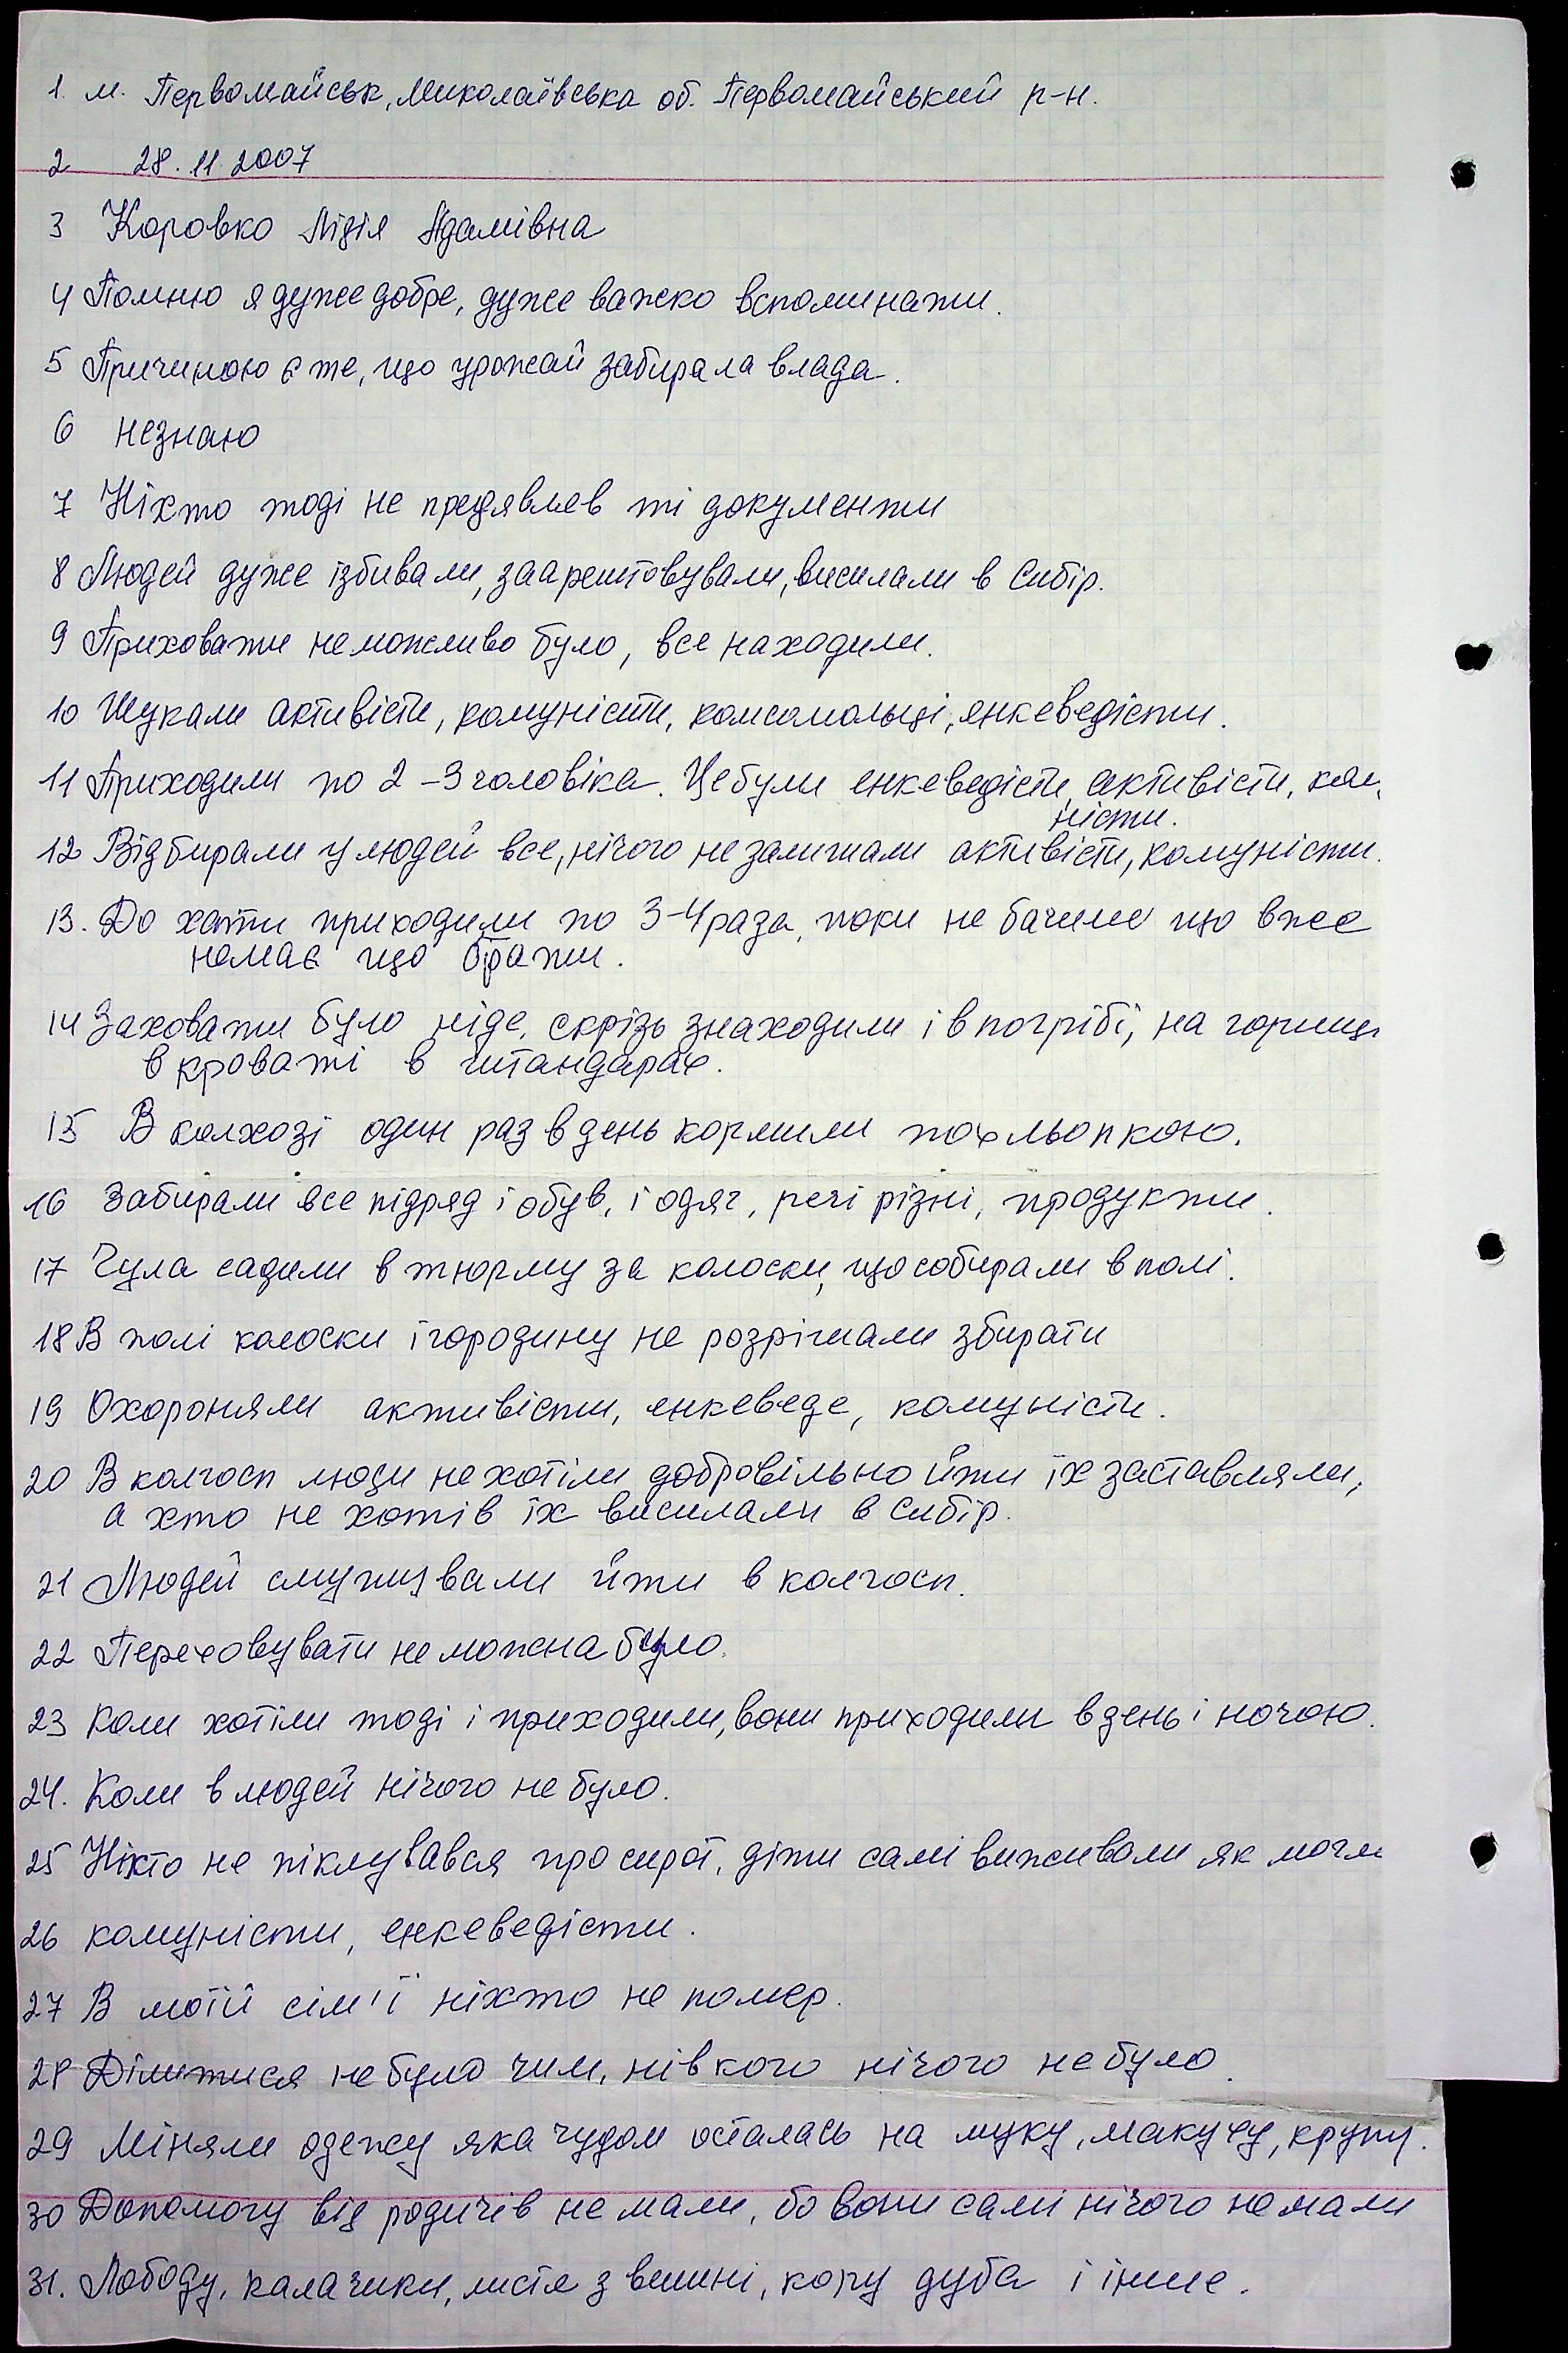 1. м. Первомайськ, Миколаївська об. Первомайський р-н.
2 28.11.2007
3 Коровко Лідія Адамівна
4 Помню я дуже добре, дуже важко вспоминати.
5 Причиною є те, що урожай забирала влада.
6 незнаю
7 Ніхто тоді не предявляв ті документи
8 Людей дуже ізбивали, заарештовували, висилали в Сибір.
9 Приховати неможливо було, все находили.
10 Шукали активісти, комуністи, комсомольці, енкеведісти.
11 Приходили по 2-3 чоловіка. Це були енкеведісти, активісти, ком,
ністи.
12 Відбирали у людей все, нічого не залишали активісти, комуністи.
13. До хати приходили по 3-4 раза, поки не бачили що вже
немає що брати.
14 Заховати було ніде, скрізь знаходили і в погрібі, на горищі
в кроваті в штандарах.
15 В колхозі один раз в день кормили похльопкою.
16 Забирали все підряд і обув, і одяг, речі різні, продукти.
17 Чула садили в тюрму за колоски, що собирали в полі.
18 В полі колоски і городину не розрішали збирати
19 Охороняли активісти, енкеведе, комуністи.
20 В колгосп люди не хотіли добровільно йти їх заставляли,
а хто не хотів їх висилали в Сибір.
21 Людей змушували йти в колгосп.
22 Переховувати не можна було.
23 Коли хотіли тоді і приходили, вони приходили в день і ночою.
24. Коли в людей нічого не було.
25 Ніхто не піклувався про сирот, діти самі виживали як могли
26 комуністи, енкеведісти.
27 В моїй сім'ї ніхто не помер.
28 Ділитися не було чим, ні в кого нічого не було.
29 Міняли одежу яка чудом осталась на муку, макуху, крупу.
30 Допомогу від родичів не мали, бо вони самі нічого не мали
31. Лободу, калачики, листя з вишні, кору дуба і інше.